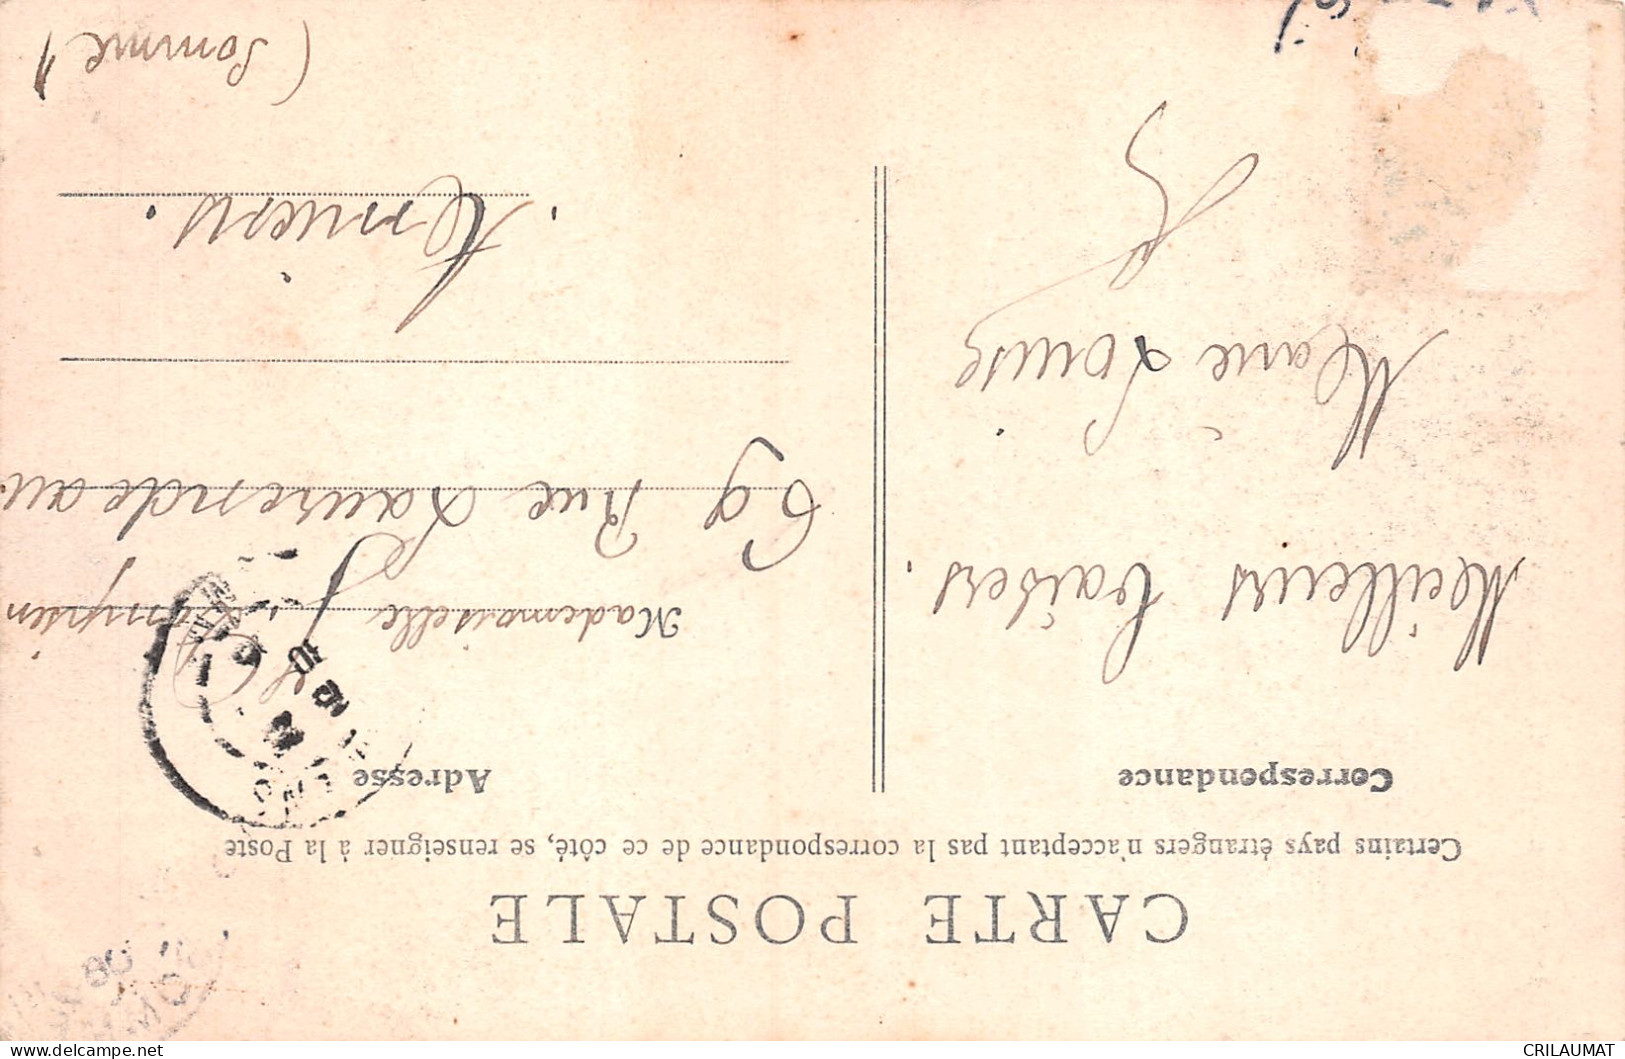 CARTE POSTALE
Certains pays étrangers n'acceptant pas la correspondance de ce côté, se renseigner à la Poste
Correspondance
Meilleurs baisers.
Marie Louise
Adresse
Mademoiselle
69 Rue Laurendeau
Amiens.
(Somme)
08
CRILAUMAT